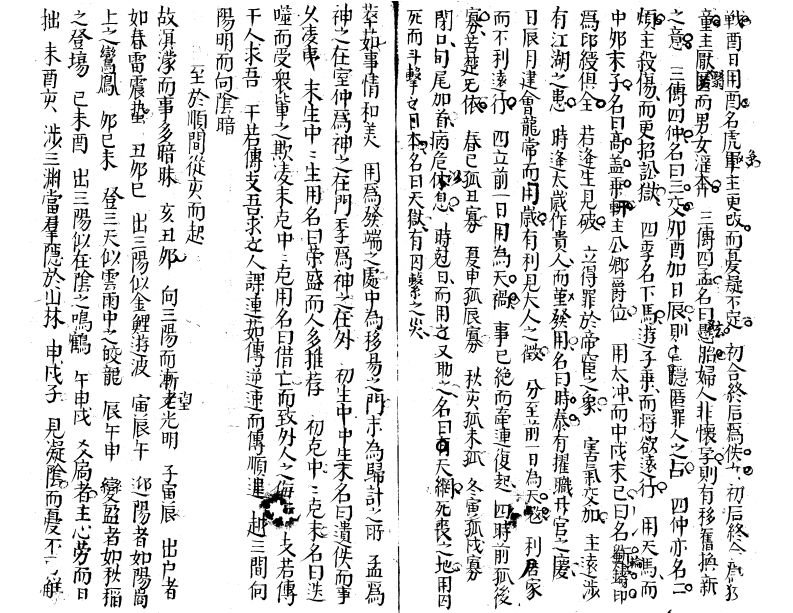 戰酉日用酉名虎畢主更改而憂疑不定初合終后爲佚女初后終合爲狡
童主厭匿而男女淫奔三傳四孟名曰懸胎婦人非懷孕則有移舊換新
之意三傳四仲名曰三交卯酉加日辰則隱匿罪人之占四仲亦名二
煩主殺傷而更招訟獄四季名下馬游子乗而將欲遠行用天馬而
中卯末子名曰高盖乗軒主公卿爵位用太冲而中戌末巳曰名斲鑄印
爲印綬俱全若逢生見破立得罪於帝室之象害氣交加主遠涉
有江湖之患時逢太歲作貴人而並發用名曰時泰有擢職升官之慶
日辰月建會龍常而用歲有利見大人之徵分至前一日爲天寇利居家
而不利遠行四立前一日用為天禍事已絶而牽連復起四時前孤後
寡苦楚无依春巳孤丑寡夏申孤辰寡秋亥孤未孤冬寅孤戌寡
閉口句尾加首病危休息時尅日而用又助之名曰天網死喪之地用囚
死而斗擊日本名曰天獄有囚繫之災
萃茹事情和美用爲發端之處中為移易之門末為歸計之所孟爲
神之在室仲爲神之在門季爲神之在外初生中中生末名曰遺佚而事
久凌夷末生中中生用名曰荣盛而人多推荐初克中中克末名曰迭
噬而受衆輩之欺凌末克中中克用名曰借亡而致外人之侮支若傳
干人求吾干若傳支吾求人課連茹傳逆連而傳順進越三間向
陽明而向陰暗
至於順間從亥而起
故溟濛而事多暗昧亥丑卯向三陽而漸望光明子寅辰出户者
如春雷震蟄丑卯巳出三陽似金鯉游波寅辰午迎陽者如陽崗
上之鸞鳳卯巳未登三天似雲雨中之蛟龍辰午申變盈者如秋稲
之登塲巳未酉出三陽似在陰之鳴鶴午申戌炎局者主心勞而日
拙未酉亥涉三淵當羣隱於山林申戌子見凝陰而憂不觧